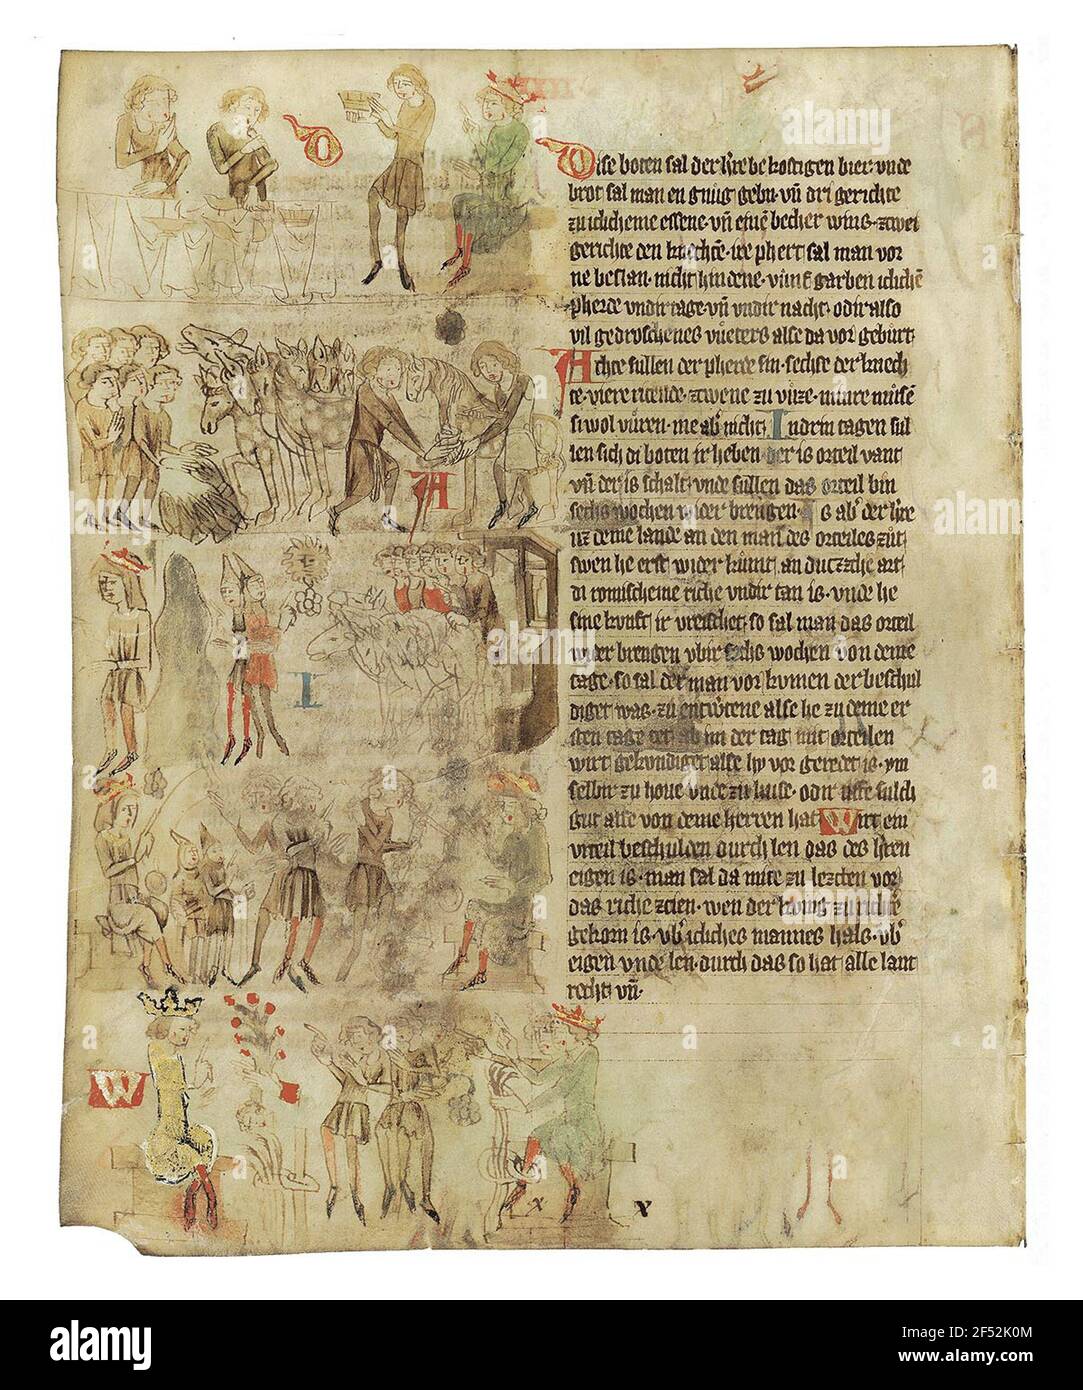 Dise boten sal der h're bekostigen bier vnde
brot sal man en gnug gebn. vn dri gerichte
zu iclicheme essene. vn eine becher wins. zwei
gerichte den knechte. ire phert sal man vor
ne bestan. nicht hindene. vunf garben iclichē
pherde vndir tage. vn vndir nacht. odir also
vil gedroschenes vuters alse da vor geburt.
Achte sullen der pherde sin. sechse der knech
te. viere ritende. zwene zu vuze. mure muse
si wol vuren. me ab' nicht. In drin tagen sul
len sich di boten ir heben. der is orteil vant
vn der is schalt. vnde sullen das orteil bin
sechs wochen wider brengen. is ab' der h're
uz deme lande an den man des orteiles zut.
swen he erst wider kumt. an dutzsche art
di romischeme riche vndir tan is. vnde he
sine kunft ir vreischet. so sal man das orteil
wider brengen vbir sechs wochen von deme
tage. so sal der man vor komen der beschul
diget was. zu entw'tene alse he zu deme er
sten tage tet ab im der tag mit orteilen
wirt gekundiget alse hy vor geredet is. ym
selbir zu houe vnde zu huse. odir uffe sulch
gut alse von deme herren hat. Wirt ein
vrteil beschulden durch len das des h'ren
eigen is. man sal da mite zu lezcten vor
das riche zcien. wen der konig zu richt'e
gekorn is. vb' icliches mannes hals. vb'
eigen vnde len. durch das so hat alle lant
recht. vn.
D
A
I
W
x
x
alamy
Image ID: 2F52K0M
www.alamy.com